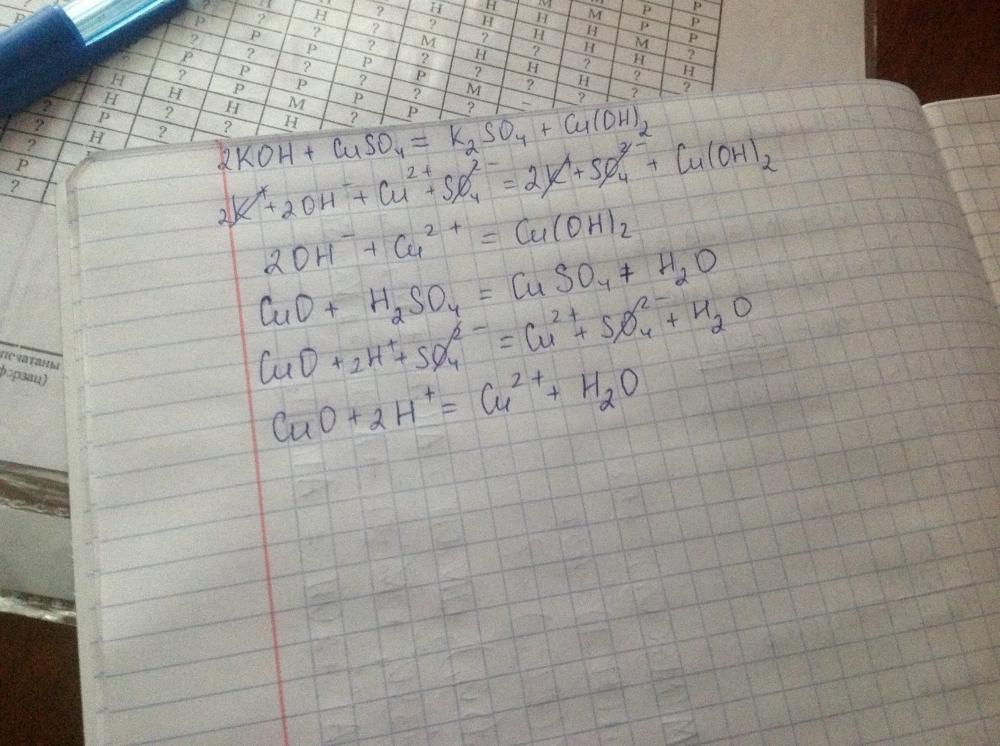 Р ? Н Р
? ? Н ? Р
Н Р ? М ? Р М Н
? ? Р Н Н ? Н
Н Р Р ? ? Н ? ?
Н Н Н Р Р ? Н
Р ? Р М М ? ?
? ? Н ? –
Р
?
печатаны
форзац)
2KOH + CuSO₄ = K₂SO₄ + Cu(OH)₂
2K⁺ + 2OH⁻ + Cu²⁺ + SO₄²⁻ = 2K + SO₄²⁻ + Cu(OH)₂
2OH⁻ + Cu²⁺ = Cu(OH)₂
CuO + H₂SO₄ = CuSO₄ + H₂O
CuO + 2H⁺ + SO₄²⁻ = Cu²⁺ + SO₄²⁻ + H₂O
CuO + 2H⁺ = Cu²⁺ + H₂O